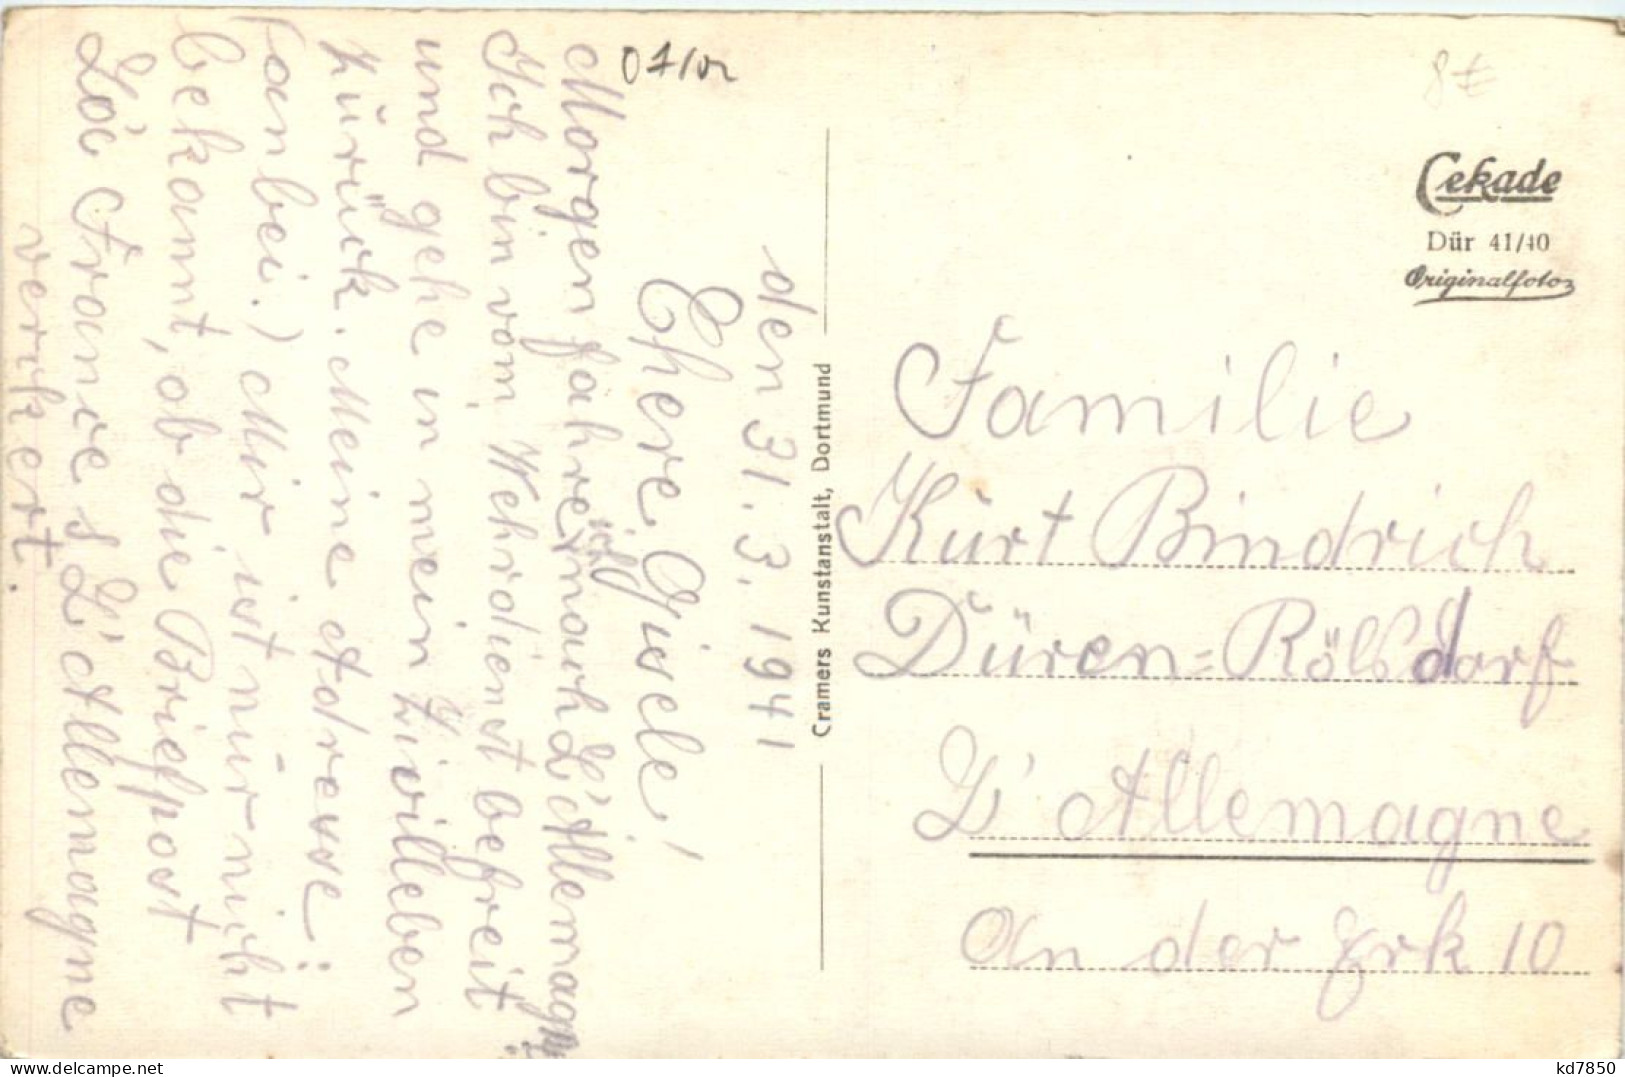 07/02
den 31. 3. 1941
Chere Gisele!
Morgen fahre ich nach L'Allemagne.
Ich bin vom Wehrdienst befreit
und gehe in mein Zivilleben
zurück. Meine Adresse:
(anbei.) Mir ist nur nicht
bekannt, ob die Briefpost
La France s L'Allemagne
verkert.
Cramers Kunstanstalt, Dortmund
8€
Cekade
Dür 41/40
Originalfoto
Familie
Kurt Bindrich
Düren=Rölsdorf
L'Allemagne
An der Erk 10
kd7850
delcampe.net